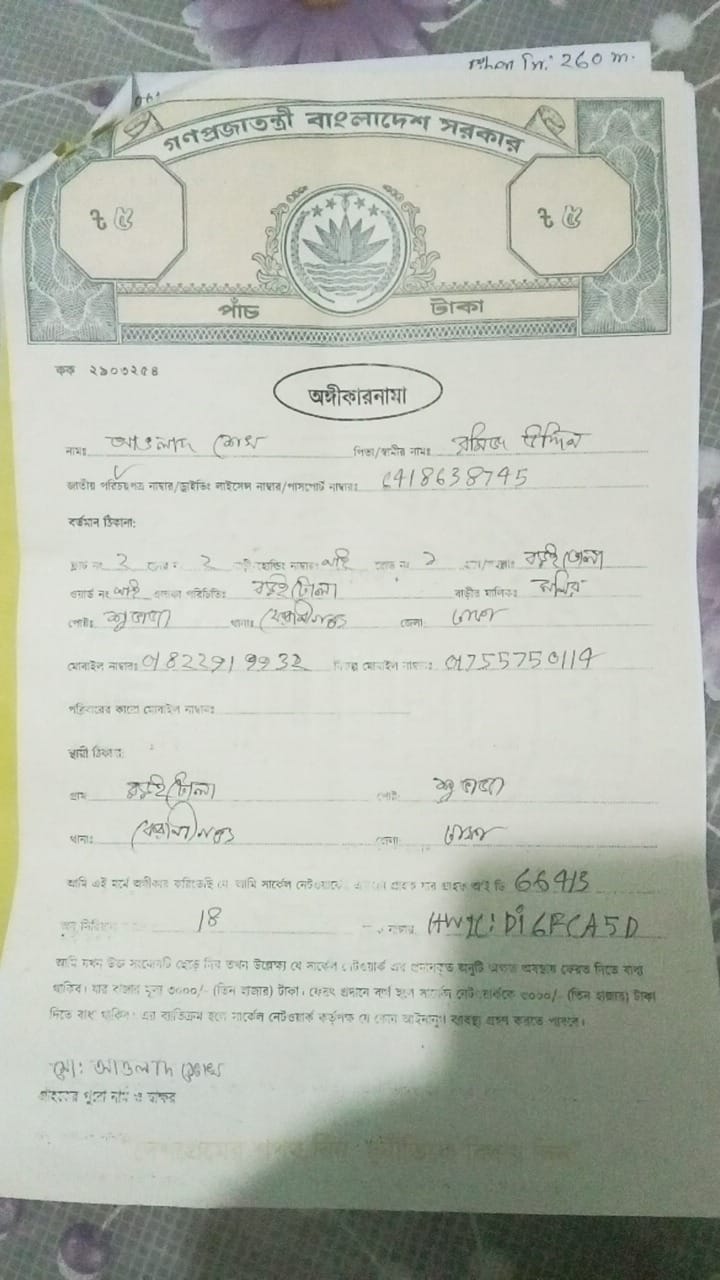 260 m.
গণপ্রজাতন্ত্রী বাংলাদেশ সরকার
৳ ৫ ৳ ৫
পাঁচ টাকা
কক ২৯০৩২৫৪
অঙ্গীকারনামা
নামঃ আওলাদ শেখ পিতা/স্বামীর নামঃ
জাতীয় পরিচয়পত্র নাম্বার/ড্রাইভিং লাইসেন্স নাম্বার/পাসপোর্ট নাম্বারঃ 6418638745
বর্তমান ঠিকানা:
২ ২ হোল্ডিং নাম্বারঃ নাই ১
ওয়ার্ড নং নাই এলাকা পরিচিতিঃ বাড়ীর মালিকঃ
পোষ্টঃ শুভাঢ্যা থানাঃ কেরানীগঞ্জ জেলা: ঢাকা
মোবাইল নাম্বারঃ 01822919932 মোবাইল নাম্বারঃ 01755750114
পরিবারের কারো মোবাইল নাম্বারঃ
স্থায়ী ঠিকানা:
গ্রাম পোষ্ট: শুভাঢ্যা
থানাঃ কেরানীগঞ্জ জেলা: ঢাকা
আমি এই মর্মে অঙ্গীকার করিতেছি যে আমি সার্কেল নেটওয়ার্কের গ্রাহক যার গ্রাহক আই ডি 66413
18 HWTC: D16FCA5D
আমি যখন উক্ত সংযোগটি ছেড়ে দিব তখন উল্লেক্ষ্য যে সার্কেল নেটওয়ার্ক এর প্রদানকৃত অনুটি অক্ষত অবস্থায় ফেরত দিতে বাধ্য
থাকিব। যার বাজার মূল্য ৩০০০/- (তিন হাজার) টাকা। ফেরৎ প্রদানে ব্যর্থ হলে সার্কেল নেটওয়ার্ককে ৩০০০/- (তিন হাজার) টাকা
দিতে বাধ্য থাকিব। এর ব্যতিক্রম হলে সার্কেল নেটওয়ার্ক কর্তৃপক্ষ যে কোন আইনানুগ ব্যবস্থা গ্রহণ করতে পারবে।
মো: আওলাদ শেখ
গ্রাহকের পুরো নাম ও স্বাক্ষর